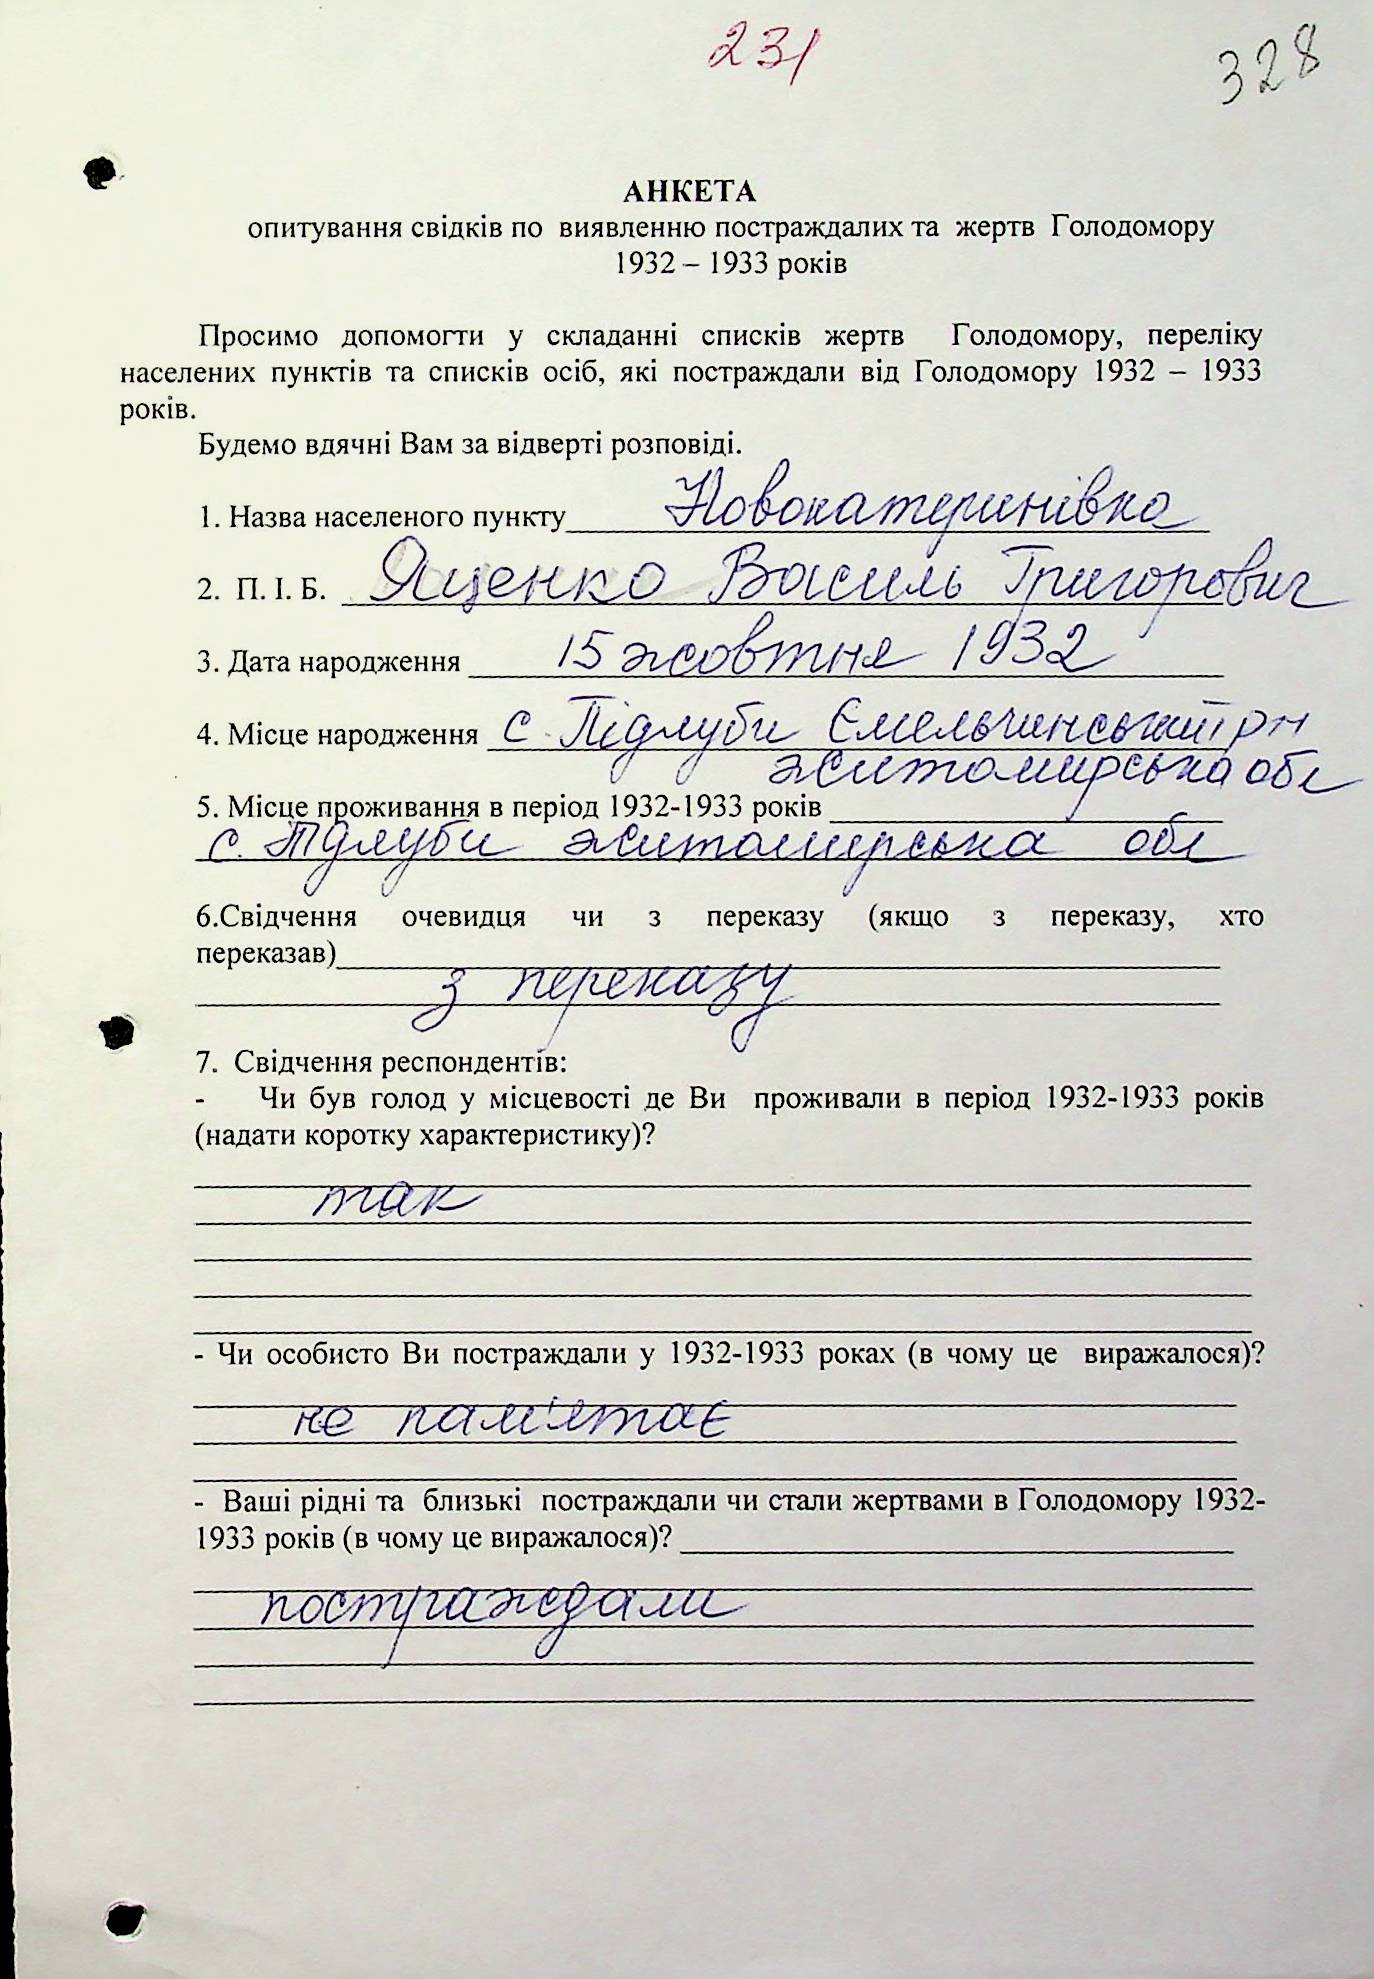 231
328
АНКЕТА
опитування свідків по виявленню постраждалих та жертв Голодомору
1932 – 1933 років
Просимо допомогти у складанні списків жертв Голодомору, переліку
населених пунктів та списків осіб, які постраждали від Голодомору 1932 – 1933
років.
Будемо вдячні Вам за відверті розповіді.
1. Назва населеного пункту Новокатеринівка
2. П. І. Б. Яценко Василь Григорович
3. Дата народження 15 жовтня 1932
4. Місце народження с Підлуби Ємельчинський рн
житомирська обл
5. Місце проживання в період 1932-1933 років
с. Підлуби житомирська обл
6.Свідчення очевидця чи з переказу (якщо з переказу, хто
переказав)
з переказу
7. Свідчення респондентів:
- Чи був голод у місцевості де Ви проживали в період 1932-1933 років
(надати коротку характеристику)?
так
- Чи особисто Ви постраждали у 1932-1933 роках (в чому це виражалося)?
не пам'ятає
- Ваші рідні та близькі постраждали чи стали жертвами в Голодомору 1932-
1933 років (в чому це виражалося)?
постраждали